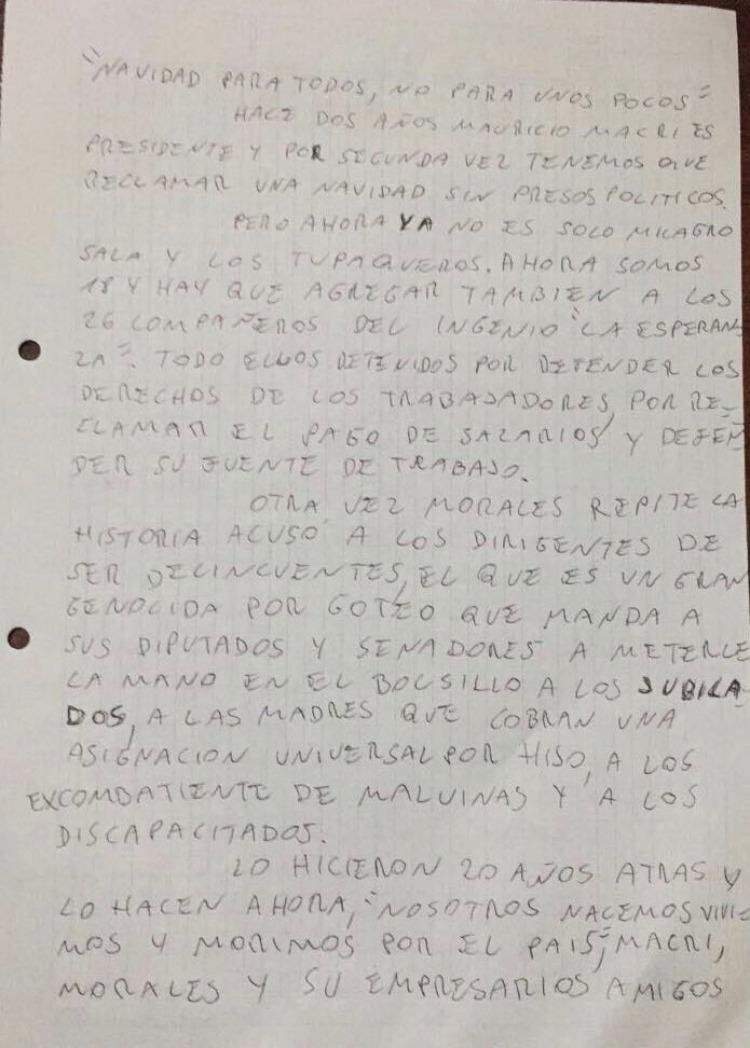 "NAVIDAD PARA TODOS, NO PARA UNOS POCOS"
HACE DOS AÑOS MAURICIO MACRI ES
PRESIDENTE Y POR SEGUNDA VEZ TENEMOS QUE
RECLAMAR UNA NAVIDAD SIN PRESOS POLITICOS.
PERO AHORA YA NO ES SOLO MILAGRO
SALA Y LOS TUPAQUEROS. AHORA SOMOS
18 Y HAY QUE AGREGAR TAMBIEN A LOS
26 COMPAÑEROS DEL INGENIO "LA ESPERAN-
ZA". TODO ELLOS DETENIDOS POR DEFENDER LOS
DERECHOS DE LOS TRABAJADORES, POR RE-
CLAMAR EL PAGO DE SALARIOS Y DEFEN
DER SU FUENTE DE TRABAJO.
OTRA VEZ MORALES REPITE LA
HISTORIA ACUSO A LOS DIRIGENTES DE
SER DELINCUENTES, EL QUE ES UN GRAN
GENOCIDA POR GOTEO QUE MANDA A
SUS DIPUTADOS Y SENADORES A METERLE
LA MANO EN EL BOLSILLO A LOS JUBILA-
DOS, A LAS MADRES QUE COBRAN UNA
ASIGNACION UNIVERSAL POR HIJO, A LOS
EXCOMBATIENTE DE MALVINAS Y A LOS
DISCAPACITADOS.
LO HICIERON 20 AÑOS ATRAS Y
LO HACEN AHORA, "NOSOTROS NACEMOS VIVI-
MOS Y MORIMOS POR EL PAIS", MACRI,
MORALES Y SU EMPRESARIOS AMIGOS